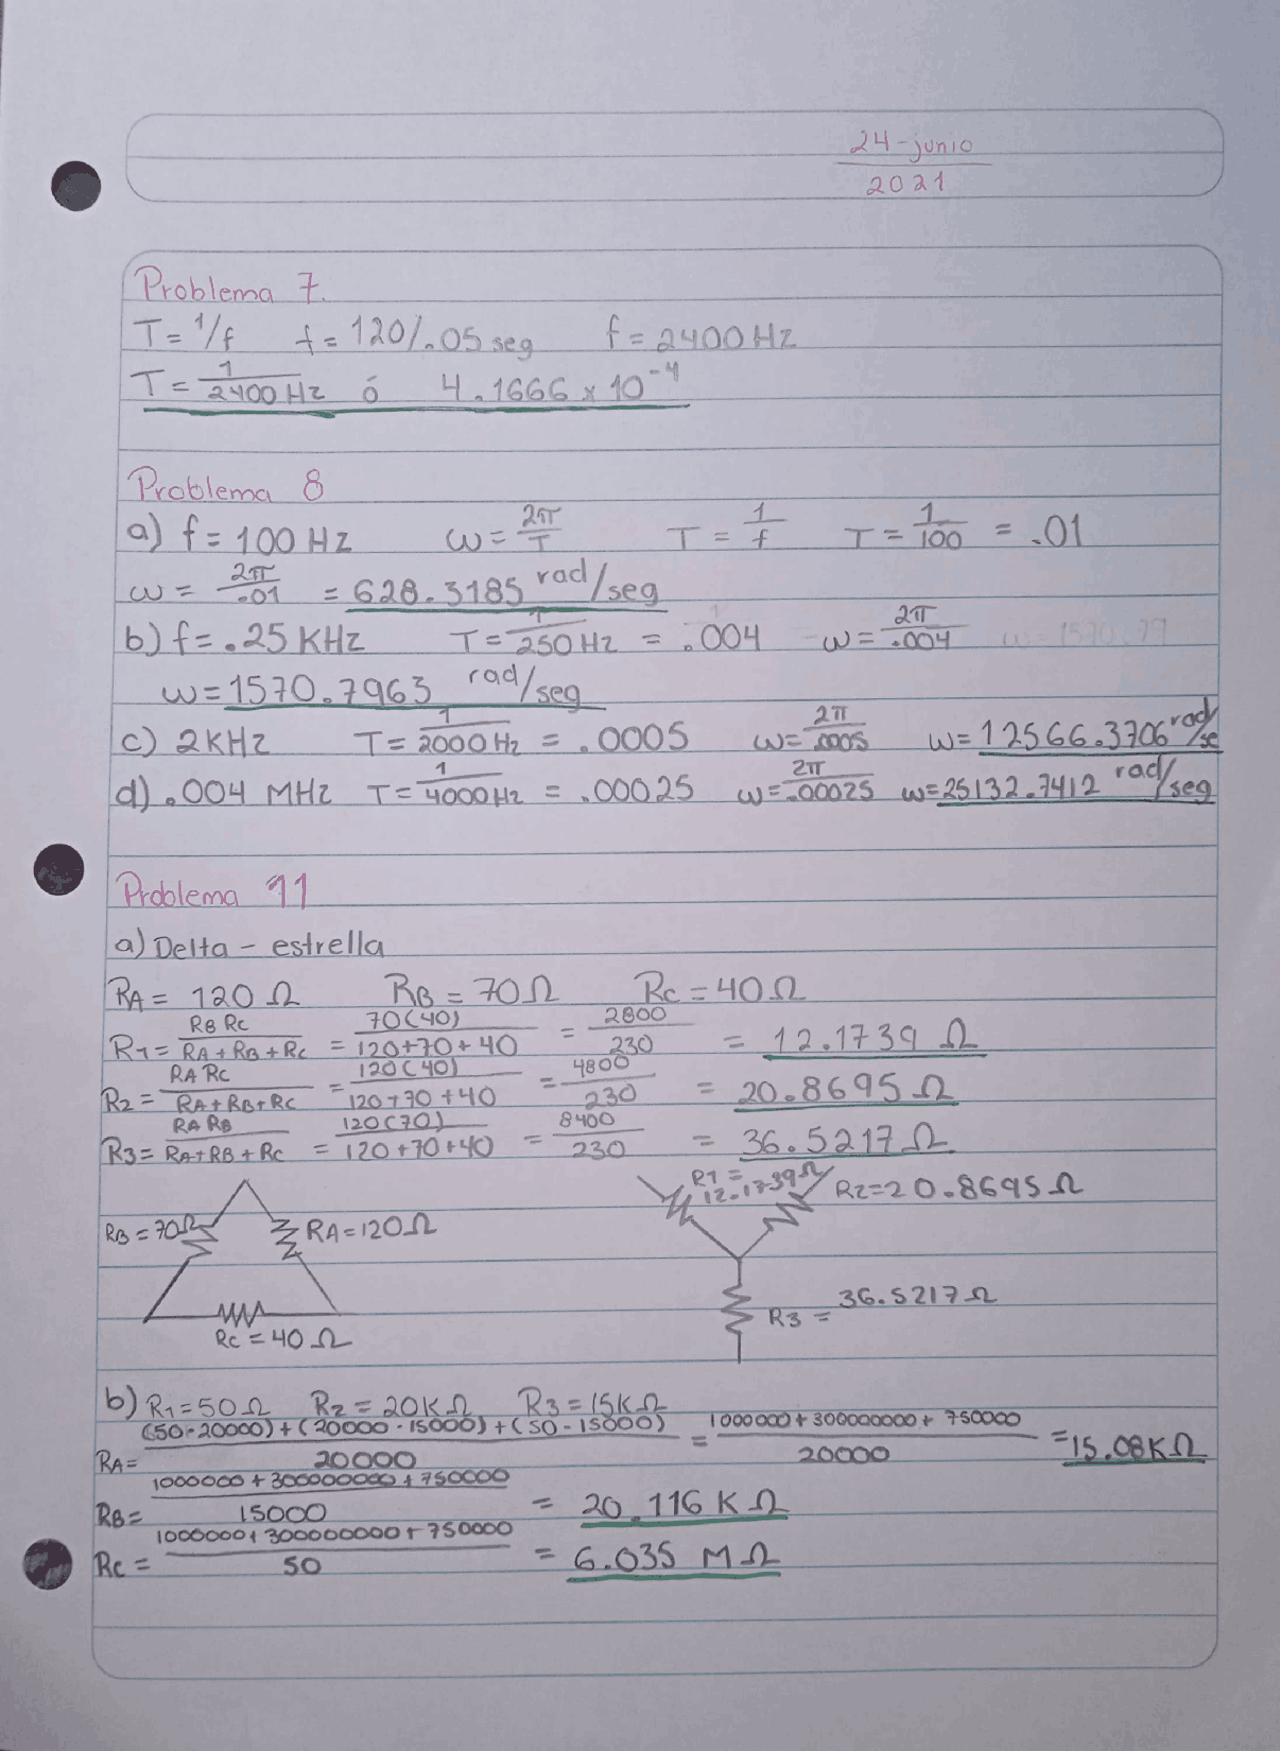 24-junio
2021
Problema 7.
T = 1/f f = 120/.05 seg f = 2400 Hz
T = 1/2400 Hz ó 4.1666 x 10^-4
Problema 8
a) f = 100 Hz ω = 2π/T T = 1/f T = 1/100 = .01
ω = 2π/.01 = 628.3185 rad/seg
b) f = .25 KHz T = 1/250 Hz = .004 ω = 2π/.004 ω = 1570.79
ω = 1570.7963 rad/seg
c) 2 KHz T = 1/2000 Hz = .0005 ω = 2π/.0005 ω = 12566.3706 rad/se
d) .004 MHz T = 1/4000 Hz = .00025 ω = 2π/.00025 ω = 25132.7412 rad/seg
Problema 11
a) Delta - estrella
RA = 120 Ω RB = 70 Ω RC = 40 Ω
R1 = RB RC/RA + RB + RC = 70(40)/120+70+40 = 2800/230 = 12.1739 Ω
R2 = RA RC/RA+RB+RC = 120(40)/120+70+40 = 4800/230 = 20.8695 Ω
R3 = RA RB/RA+RB+RC = 120(70)/120+70+40 = 8400/230 = 36.5217 Ω
RB = 70Ω RA = 120Ω R1 = 12.1739Ω R2 = 20.8695 Ω
RC = 40 Ω R3 = 36.5217 Ω
b) R1 = 50 Ω R2 = 20K Ω R3 = 15K Ω
RA = (50·20000)+(20000·15000)+(50-15000)/20000 = 1000000+300000000+750000/20000 = 15.08K Ω
RB = 1000000+300000000+750000/15000 = 20.116 K Ω
RC = 1000000+300000000+750000/50 = 6.035 M Ω